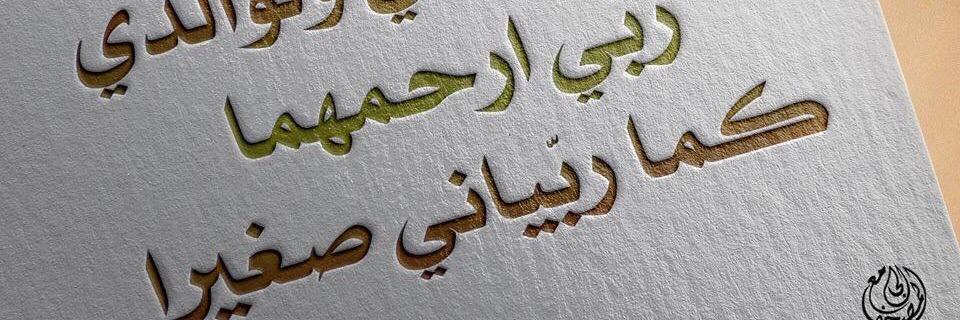 ولوالدي
ربي ارحمهما
كما ربّياني صغيرا